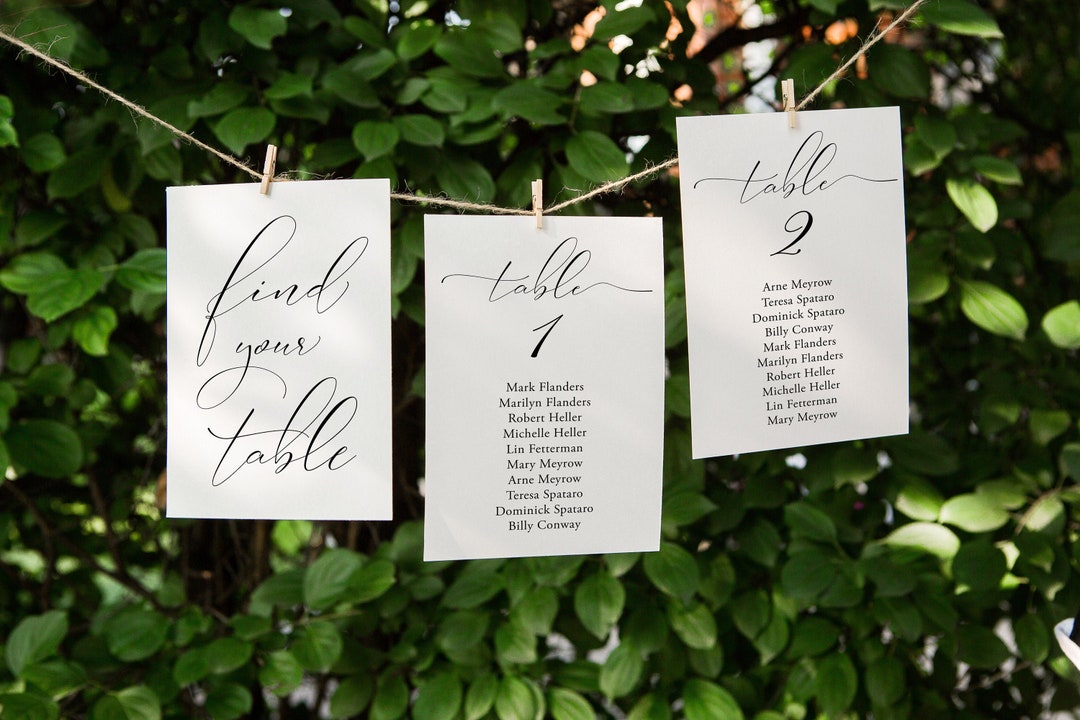 find
your
table
table
1
Mark Flanders
Marilyn Flanders
Robert Heller
Michelle Heller
Lin Fetterman
Mary Meyrow
Arne Meyrow
Teresa Spataro
Dominick Spataro
Billy Conway
table
2
Arne Meyrow
Teresa Spataro
Dominick Spataro
Billy Conway
Mark Flanders
Marilyn Flanders
Robert Heller
Michelle Heller
Lin Fetterman
Mary Meyrow